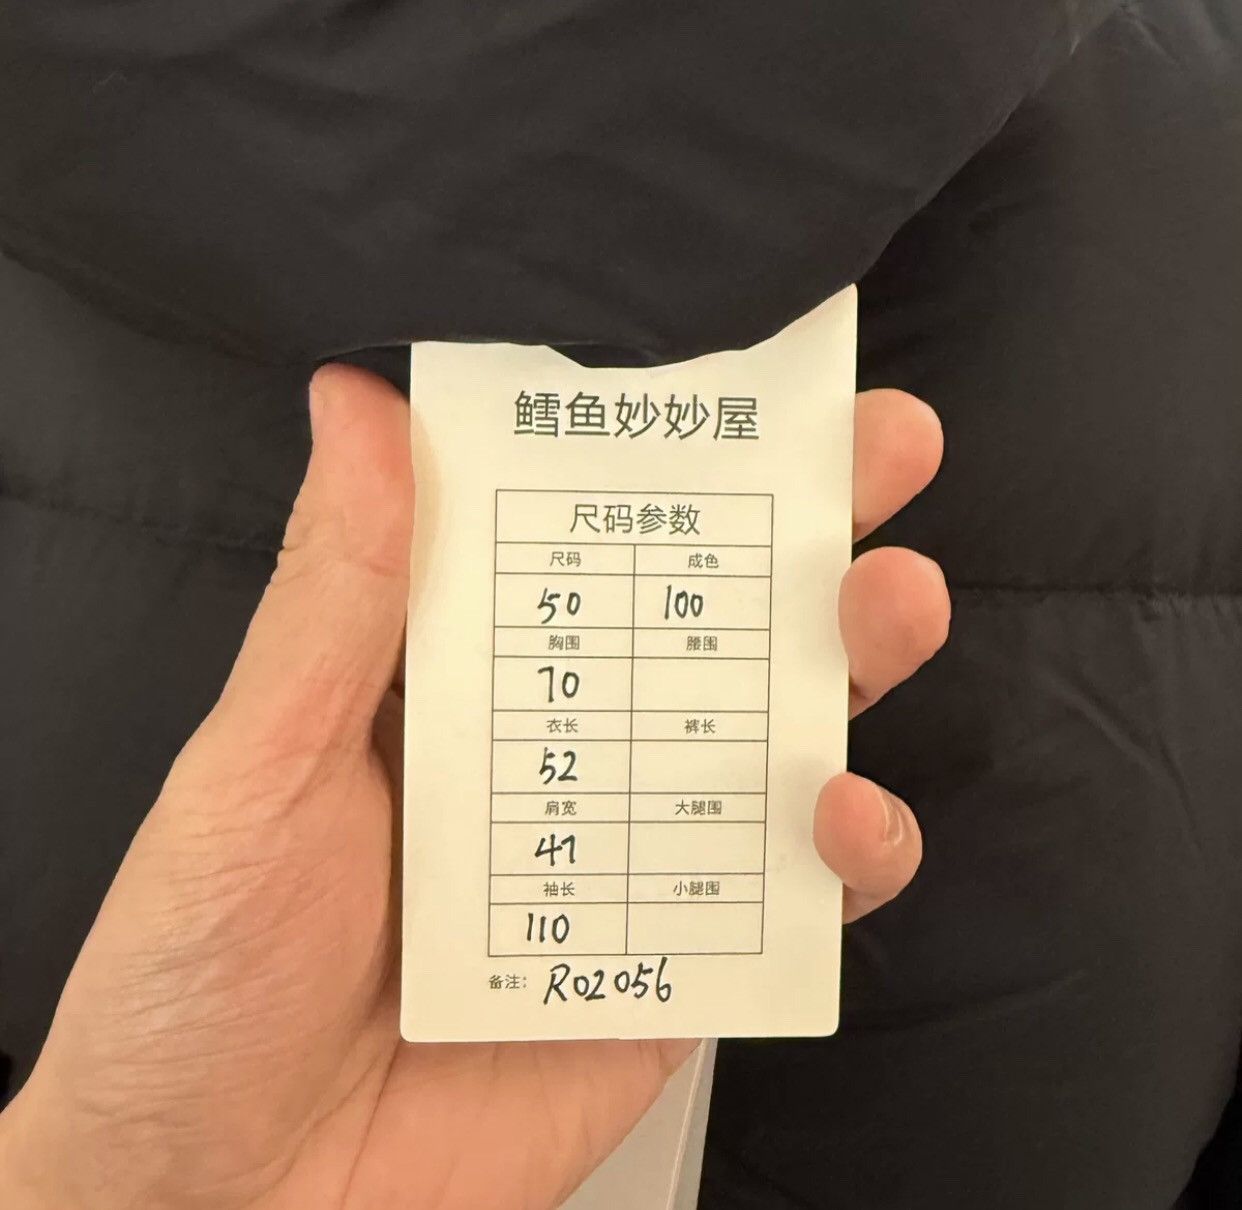 鳕鱼妙妙屋
尺码参数
尺码 成色
50 100
胸围 腰围
70
衣长 裤长
52
肩宽 大腿围
47
袖长 小腿围
110
备注: R02056